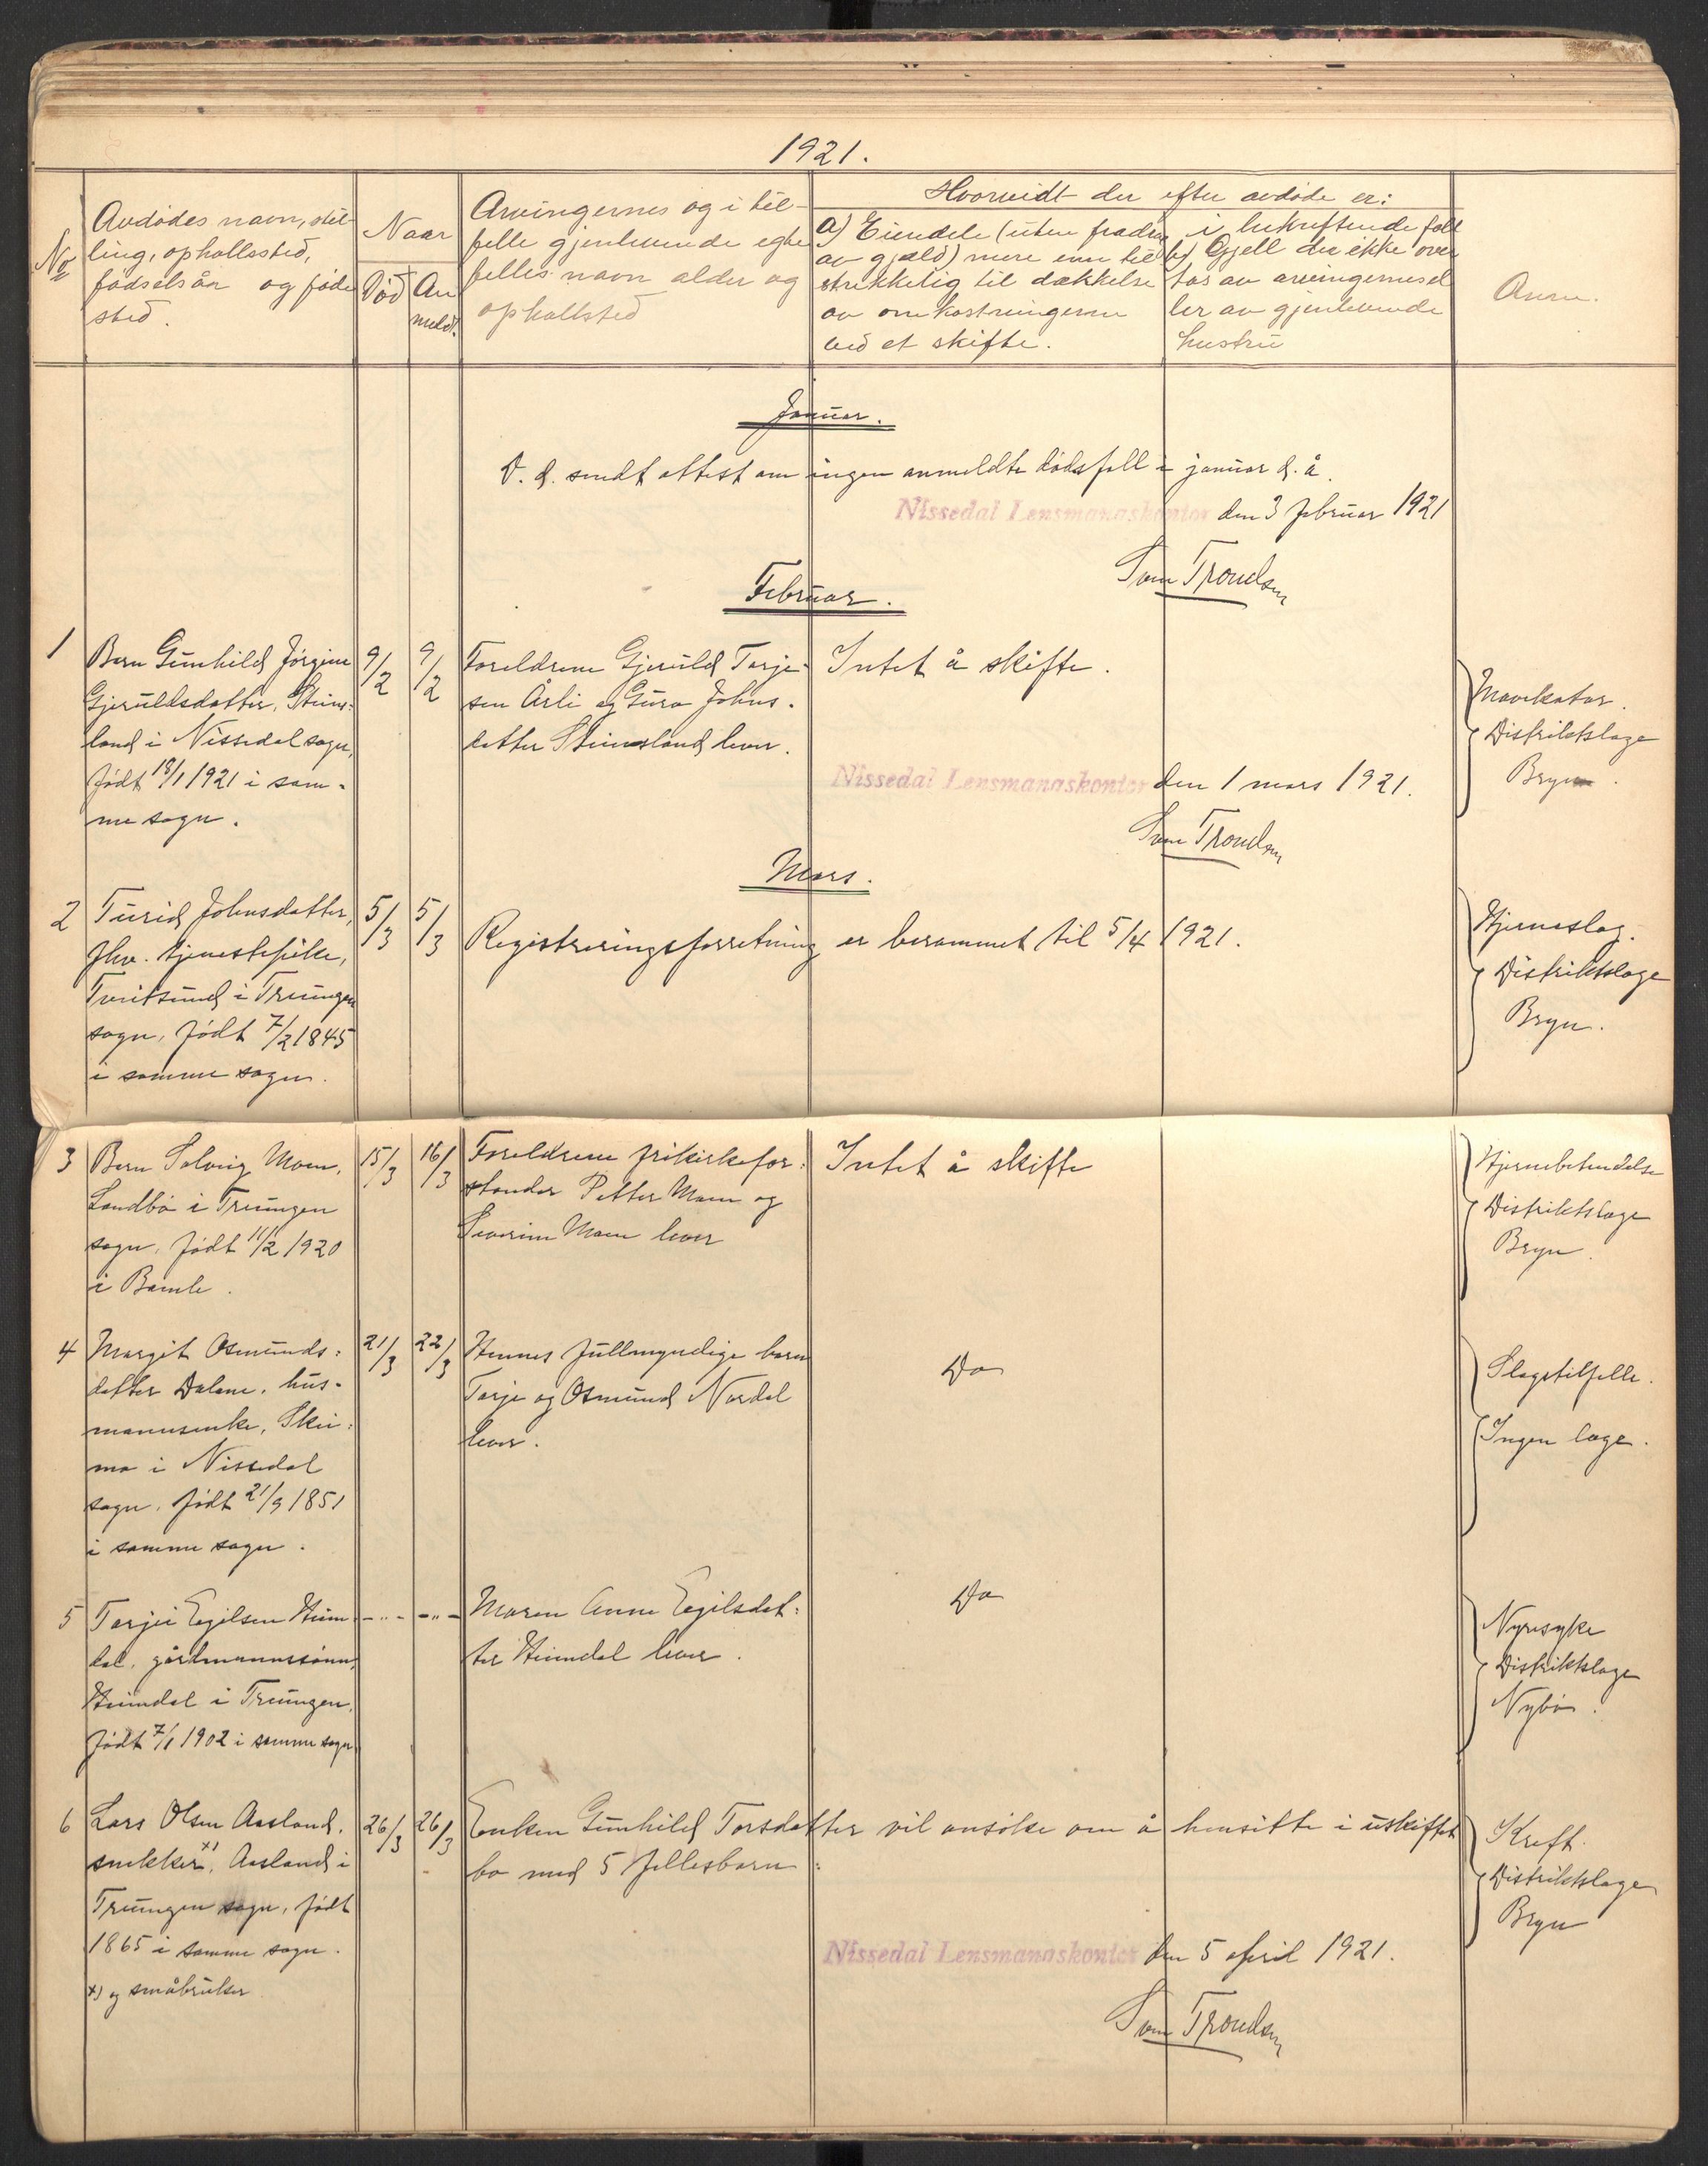 1921.
No
Avdødes navn, stil-
ling, opholdssted,
fødselsår og føde
sted.
Naar
Død
An
meldt.
Arvingernes og i til-
felle gjenlevende egte
felles navn alder og
opholdsted
Hvorvidt der efter avdøde er:
a) Eiendele (uten fradrag
av gjæld) mere enn til
strekkelig til dækkelse
av omkostningerne
ved et skifte.
i bekreftende fall
b) Gjell der ikke over
tas av arvingernes el
ler av gjenlevende
hustru
Anm.
Januar.
D. d. sendt attest om ingen anmeldte dødsfall i januar d. å.
Nissedal Lensmannskontor den 3 februar 1921
Sven Trondsen
Februar.
1
Barn Gunhild Jørgine
Gjeruldsdatter, Steins-
land i Nissedal sogn,
født 18/1 1921 i sam-
me sogn.
9/2
9/2
Foreldrene Gjeruld Tarje-
sen Årli og Guro Johns-
datter Steinsland lever.
Intet å skifte.
Mavekatar.
Distriktslæge
Bryn.
Nissedal Lensmannskontor den 1 mars 1921.
Sven Trondsen
Mars.
2
Turid Johnsdatter,
fhv. tjenestepike,
Tveitsund i Treungen
sogn, født 7/2 1845
i samme sogn.
5/3
5/3
Registreringsforretning er berammet til 5/4 1921.
Hjerneslag.
Distriktslæge
Bryn.
3
Barn Solveig Moen,
Sandbø i Treungen
sogn, født 11/2 1920
i Bamle.
15/3
16/3
Foreldrene frikirkefor-
stander Petter Moen og
Severine Moen lever
Intet å skifte
Hjernebetendelse
Distriktslæge
Bryn.
4
Margit Osmunds-
datter Dalene, hus-
mannsenke, Skei-
mo i Nissedal
sogn, født 21/9 1851
i samme sogn.
21/3
22/3
Hennes fullmyndige barn
Tarje og Osmund Nordal
lever.
Do
Slagtilfelle.
Ingen læge.
5
Tarjei Egilsen Heim
dal, gårdmannssønn,
Heimdal i Treungen,
født 7/1 1902 i samme sogn
-"-
-"-
Maren Anne Egilsdat-
ter Heimdal lever.
Do
Nyresyke
Distriktslæge
Nybø.
6
Lars Olsen Aasland,
snekker x), Aasland i
Treungen sogn, født
1865 i samme sogn.
x) og småbruker
26/3
26/3
Enken Gunhild Torsdatter vil ansøke om å hensitte i uskiftet
bo med 5 fellesbarn.
Kreft.
Distriktslæge
Bryn
Nissedal Lensmannskontor den 5 april 1921.
Sven Trondsen